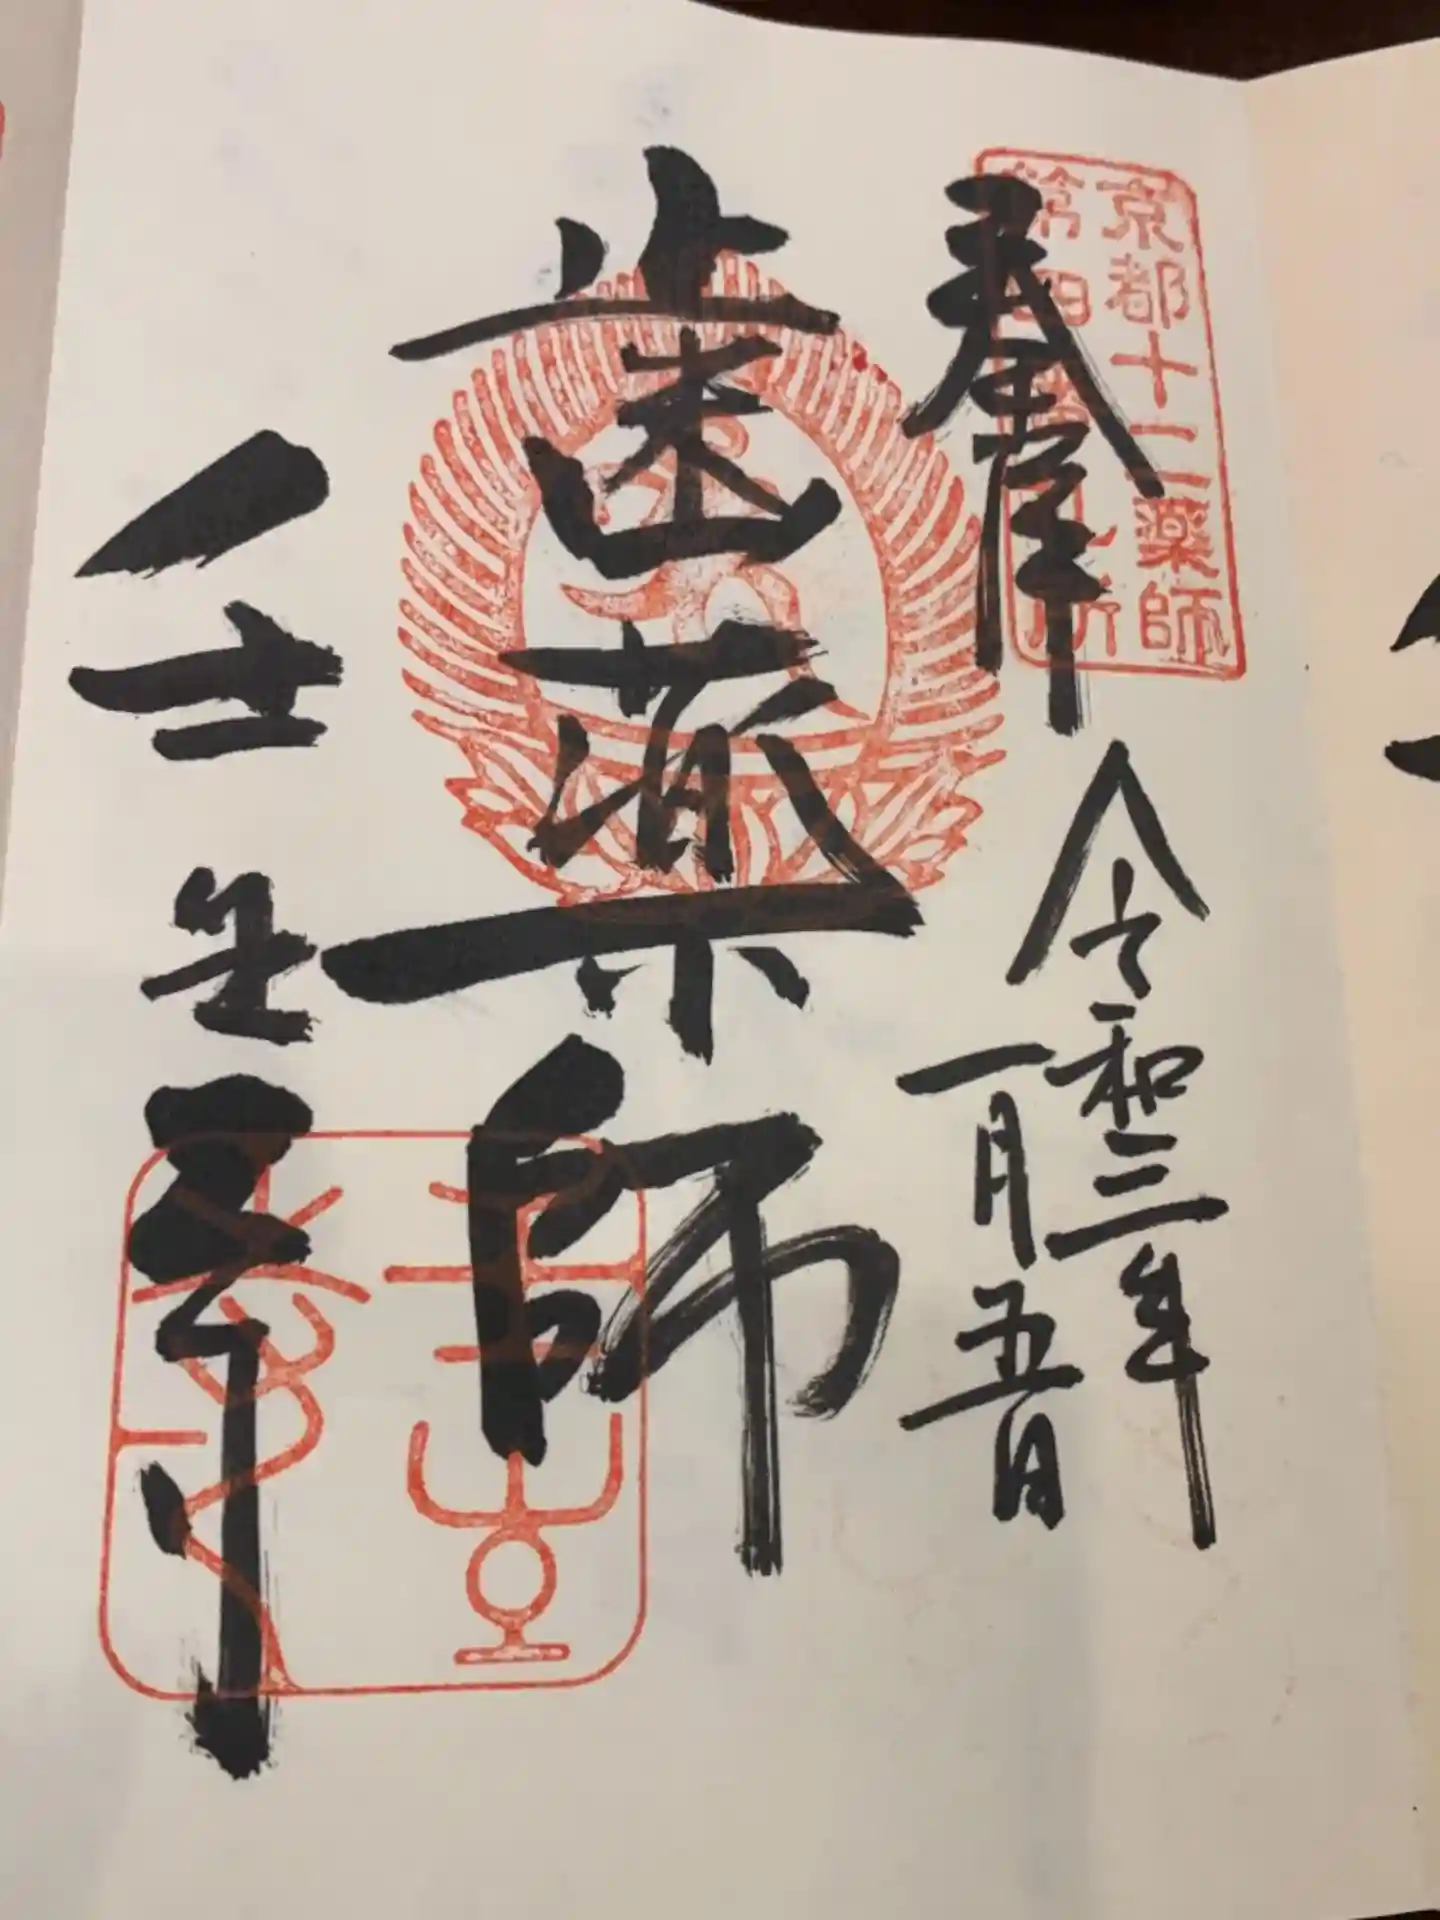 京都十二薬師
第四番札所
奉拝
令和三年
一月五日
歯薬師
壬生寺